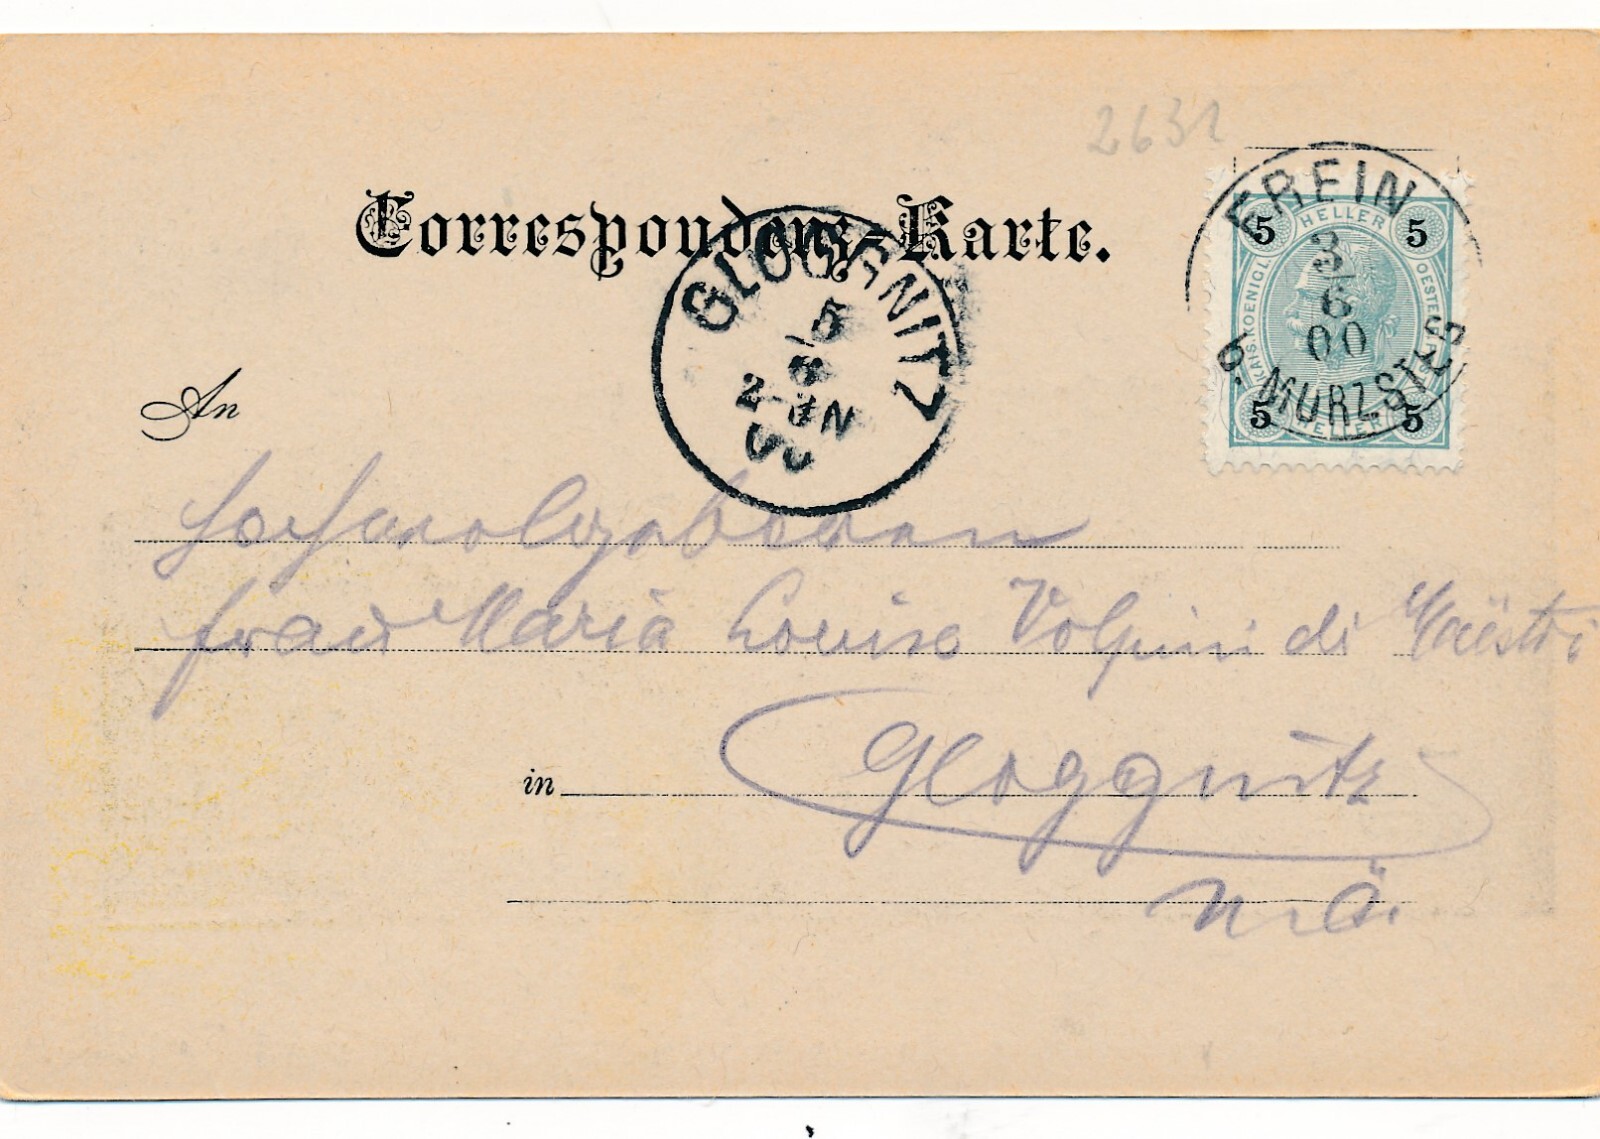 2631
Correspondenz-Karte.
FREIN
3/6
00
MÜRZSTEG
5 HELLER 5
KAIS. KOENIGL. OESTERR.
5 HELLER 5
GLOGGNITZ
5
6
2-3N
00
An
Hochwolgeboren
Frau Maria Louise Volpini di Maestri
in Gloggnitz
N.Ö.